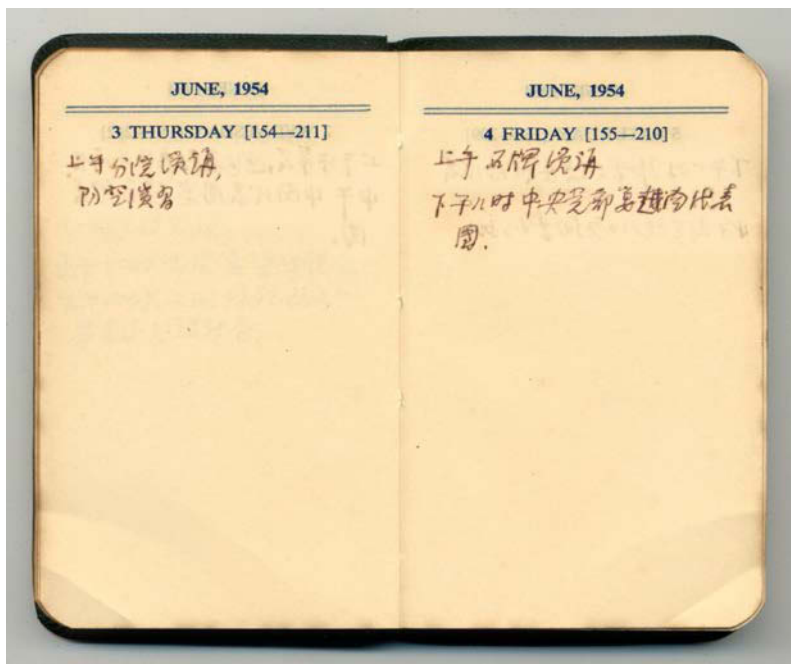 JUNE, 1954
3 THURSDAY [154—211]
上午分院演講,
防空演習
JUNE, 1954
4 FRIDAY [155—210]
上午石牌演講
下午八时中央党部宴越南代表
團.